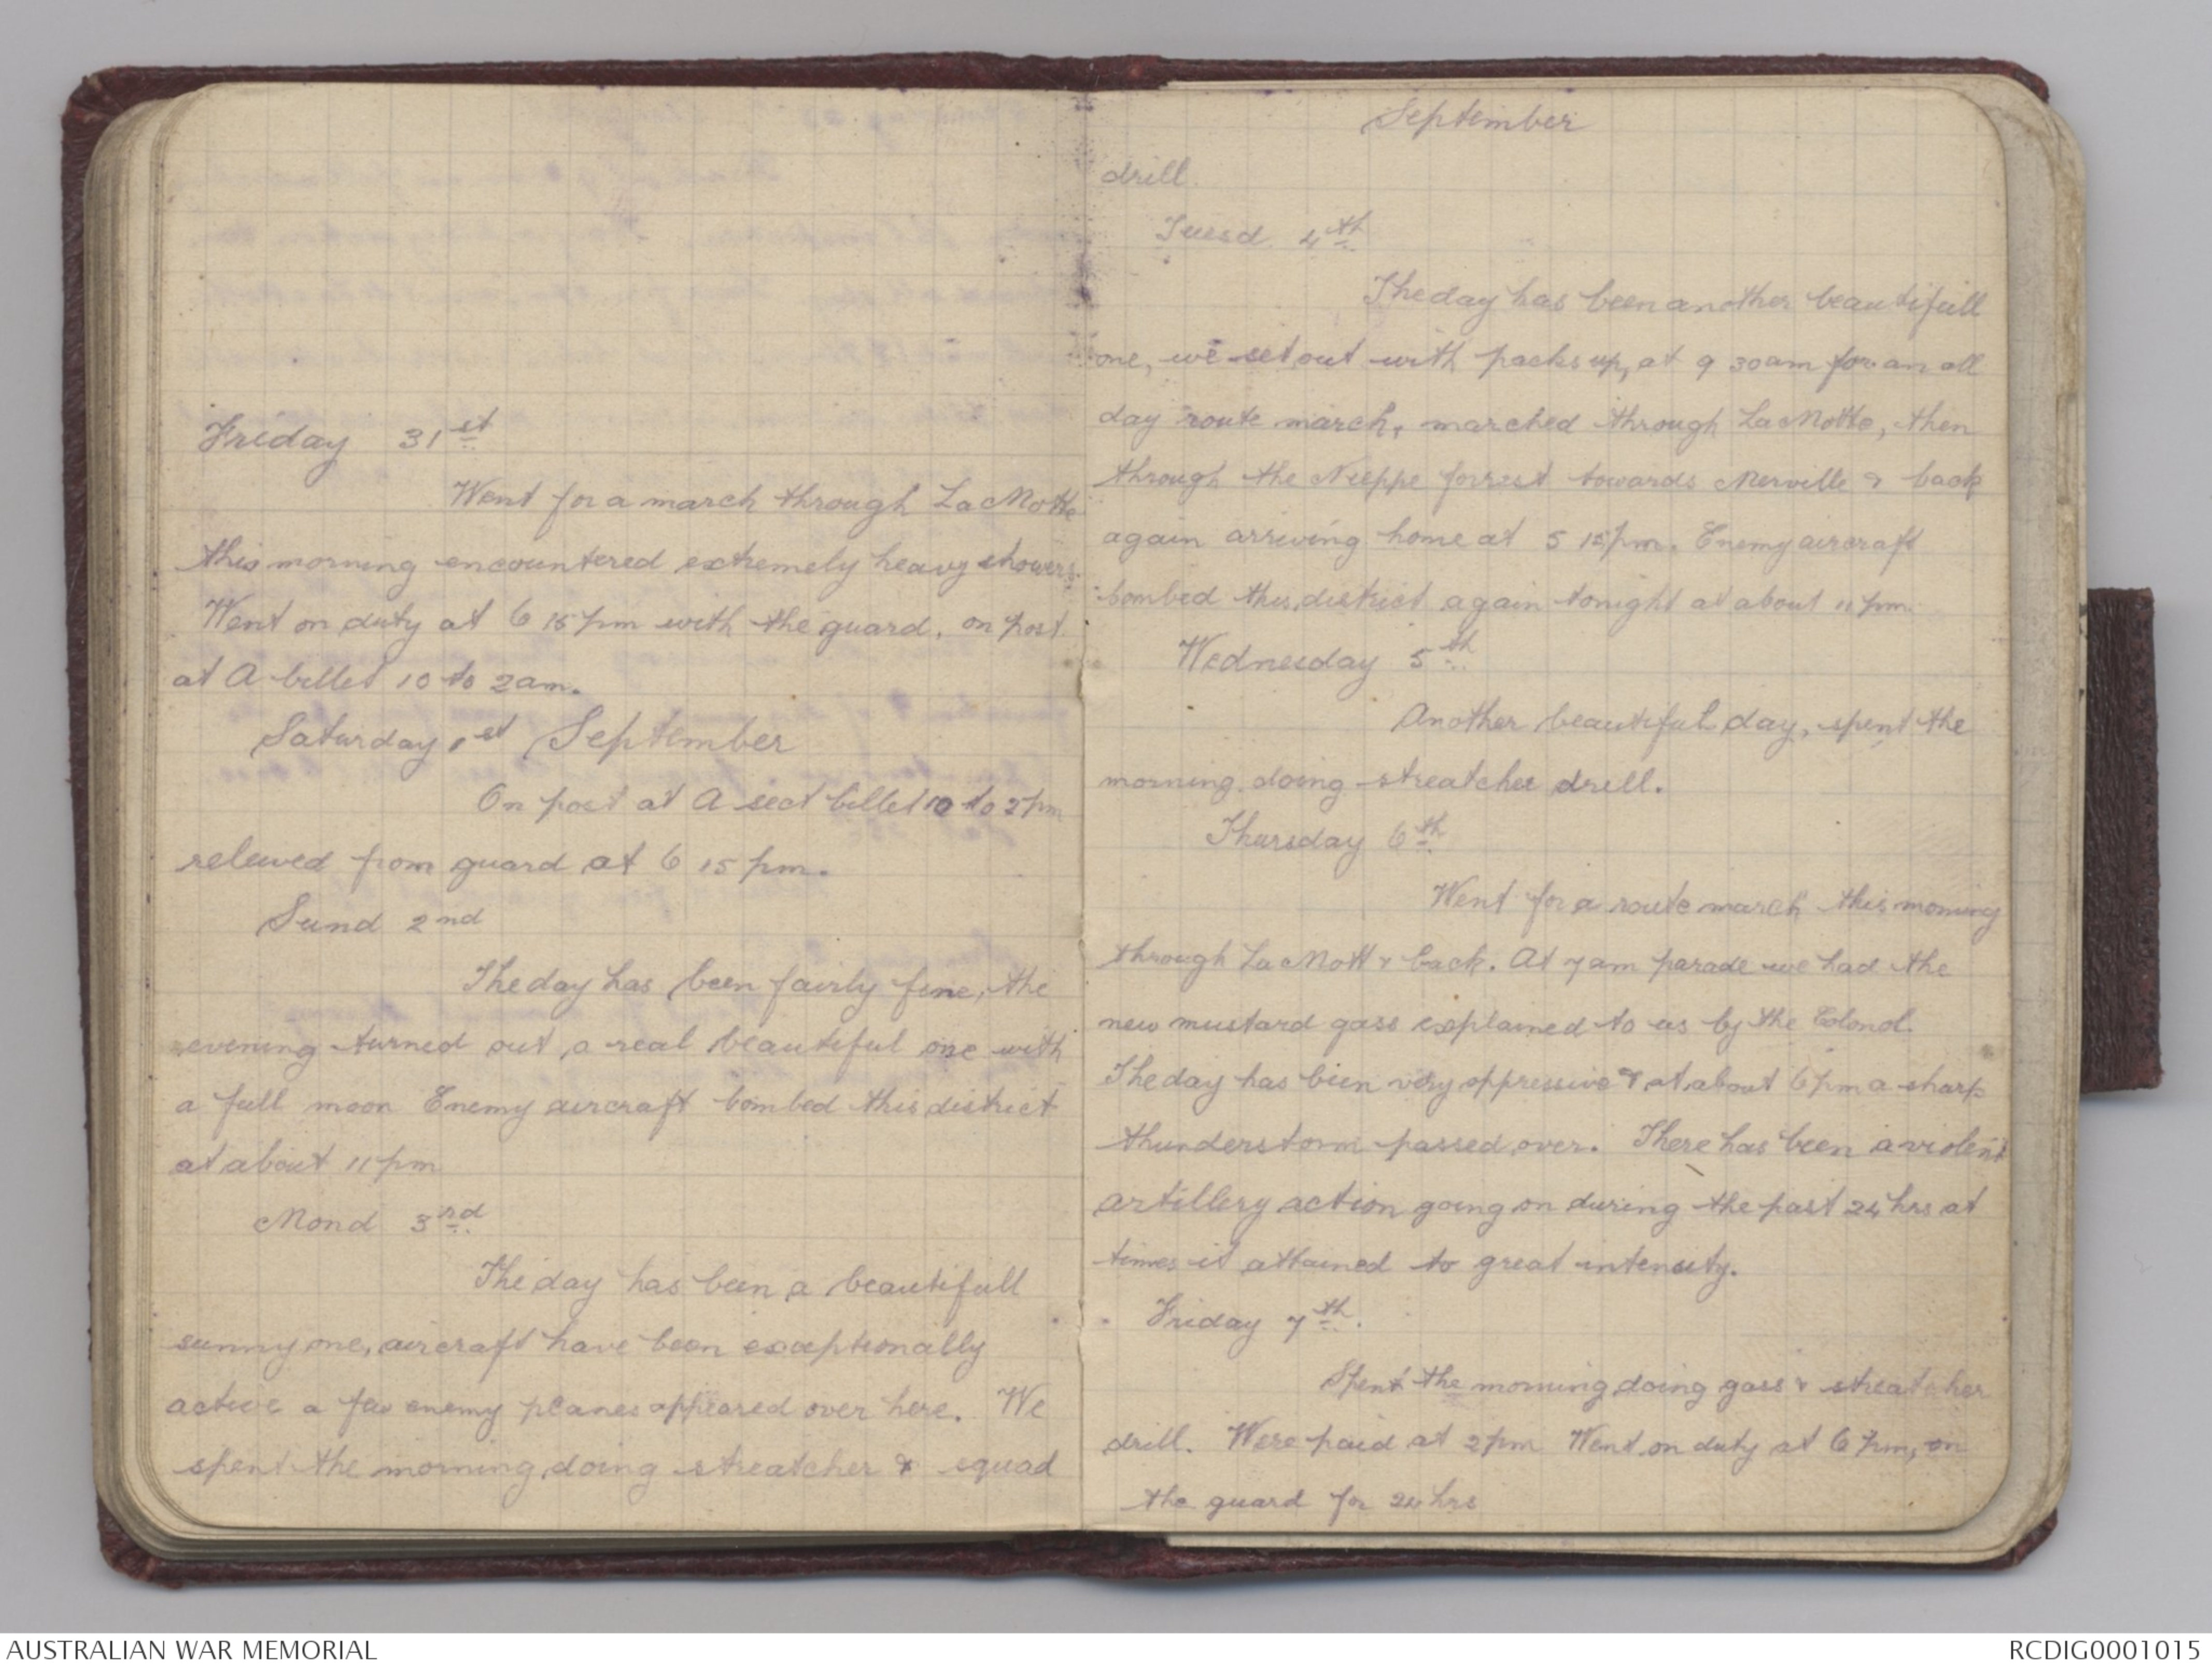 Friday 31st
Went for a march through La Motte
this morning encountered extremely heavy showers.
Went on duty at 6 15 pm with the guard, on post
at A billet 10 to 2am.
Saturday 1st September
On post at A sect billet 10 to 2pm
releived from guard at 6 15 pm.
Sund 2nd
The day has been fairly fine, the
evening turned out a real beautiful one with
a full moon Enemy aircraft bombed this district
at about 11 pm
Mond 3rd
The day has been a beautifull
sunny one, aircraft have been exceptionally
active a few enemy planes appeared over here. We
spent the morning doing streatcher & squad
September
drill.
Tuesd 4th
The day has been another beautifull
one, we set out with packs up, at 9 30am for an all
day route march, marched through La Motte, then
through the Nieppe forrest towards Merville & back
again arriving home at 5 15pm. Enemy aircraft
bombed this district again tonight at about 11 pm.
Wednesday 5th
Another beautiful day, spent the
morning doing streatcher drill.
Thursday 6th
Went for a route march this morning
through La Mott & back. At 7am parade we had the
new mustard gass explained to us by the Colonol.
The day has been very oppressive & at about 6pm a sharp
thunderstorm passed over. There has been a violent
artillery action going on during the past 24 hrs at
times it attained to great intensity.
Friday 7th.
Spent the morning doing gass & streatcher
drill. Were paid at 2pm Went on duty at 6 pm, on
the guard for 24 hrs
AUSTRALIAN WAR MEMORIAL
RCDIG0001015